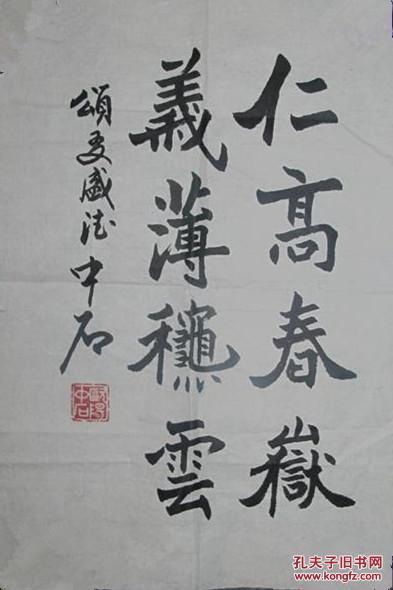 仁高春嶽
義薄龝雲
頌友盛德 中石
歐陽中石
孔夫子旧书网
www.kongfz.com